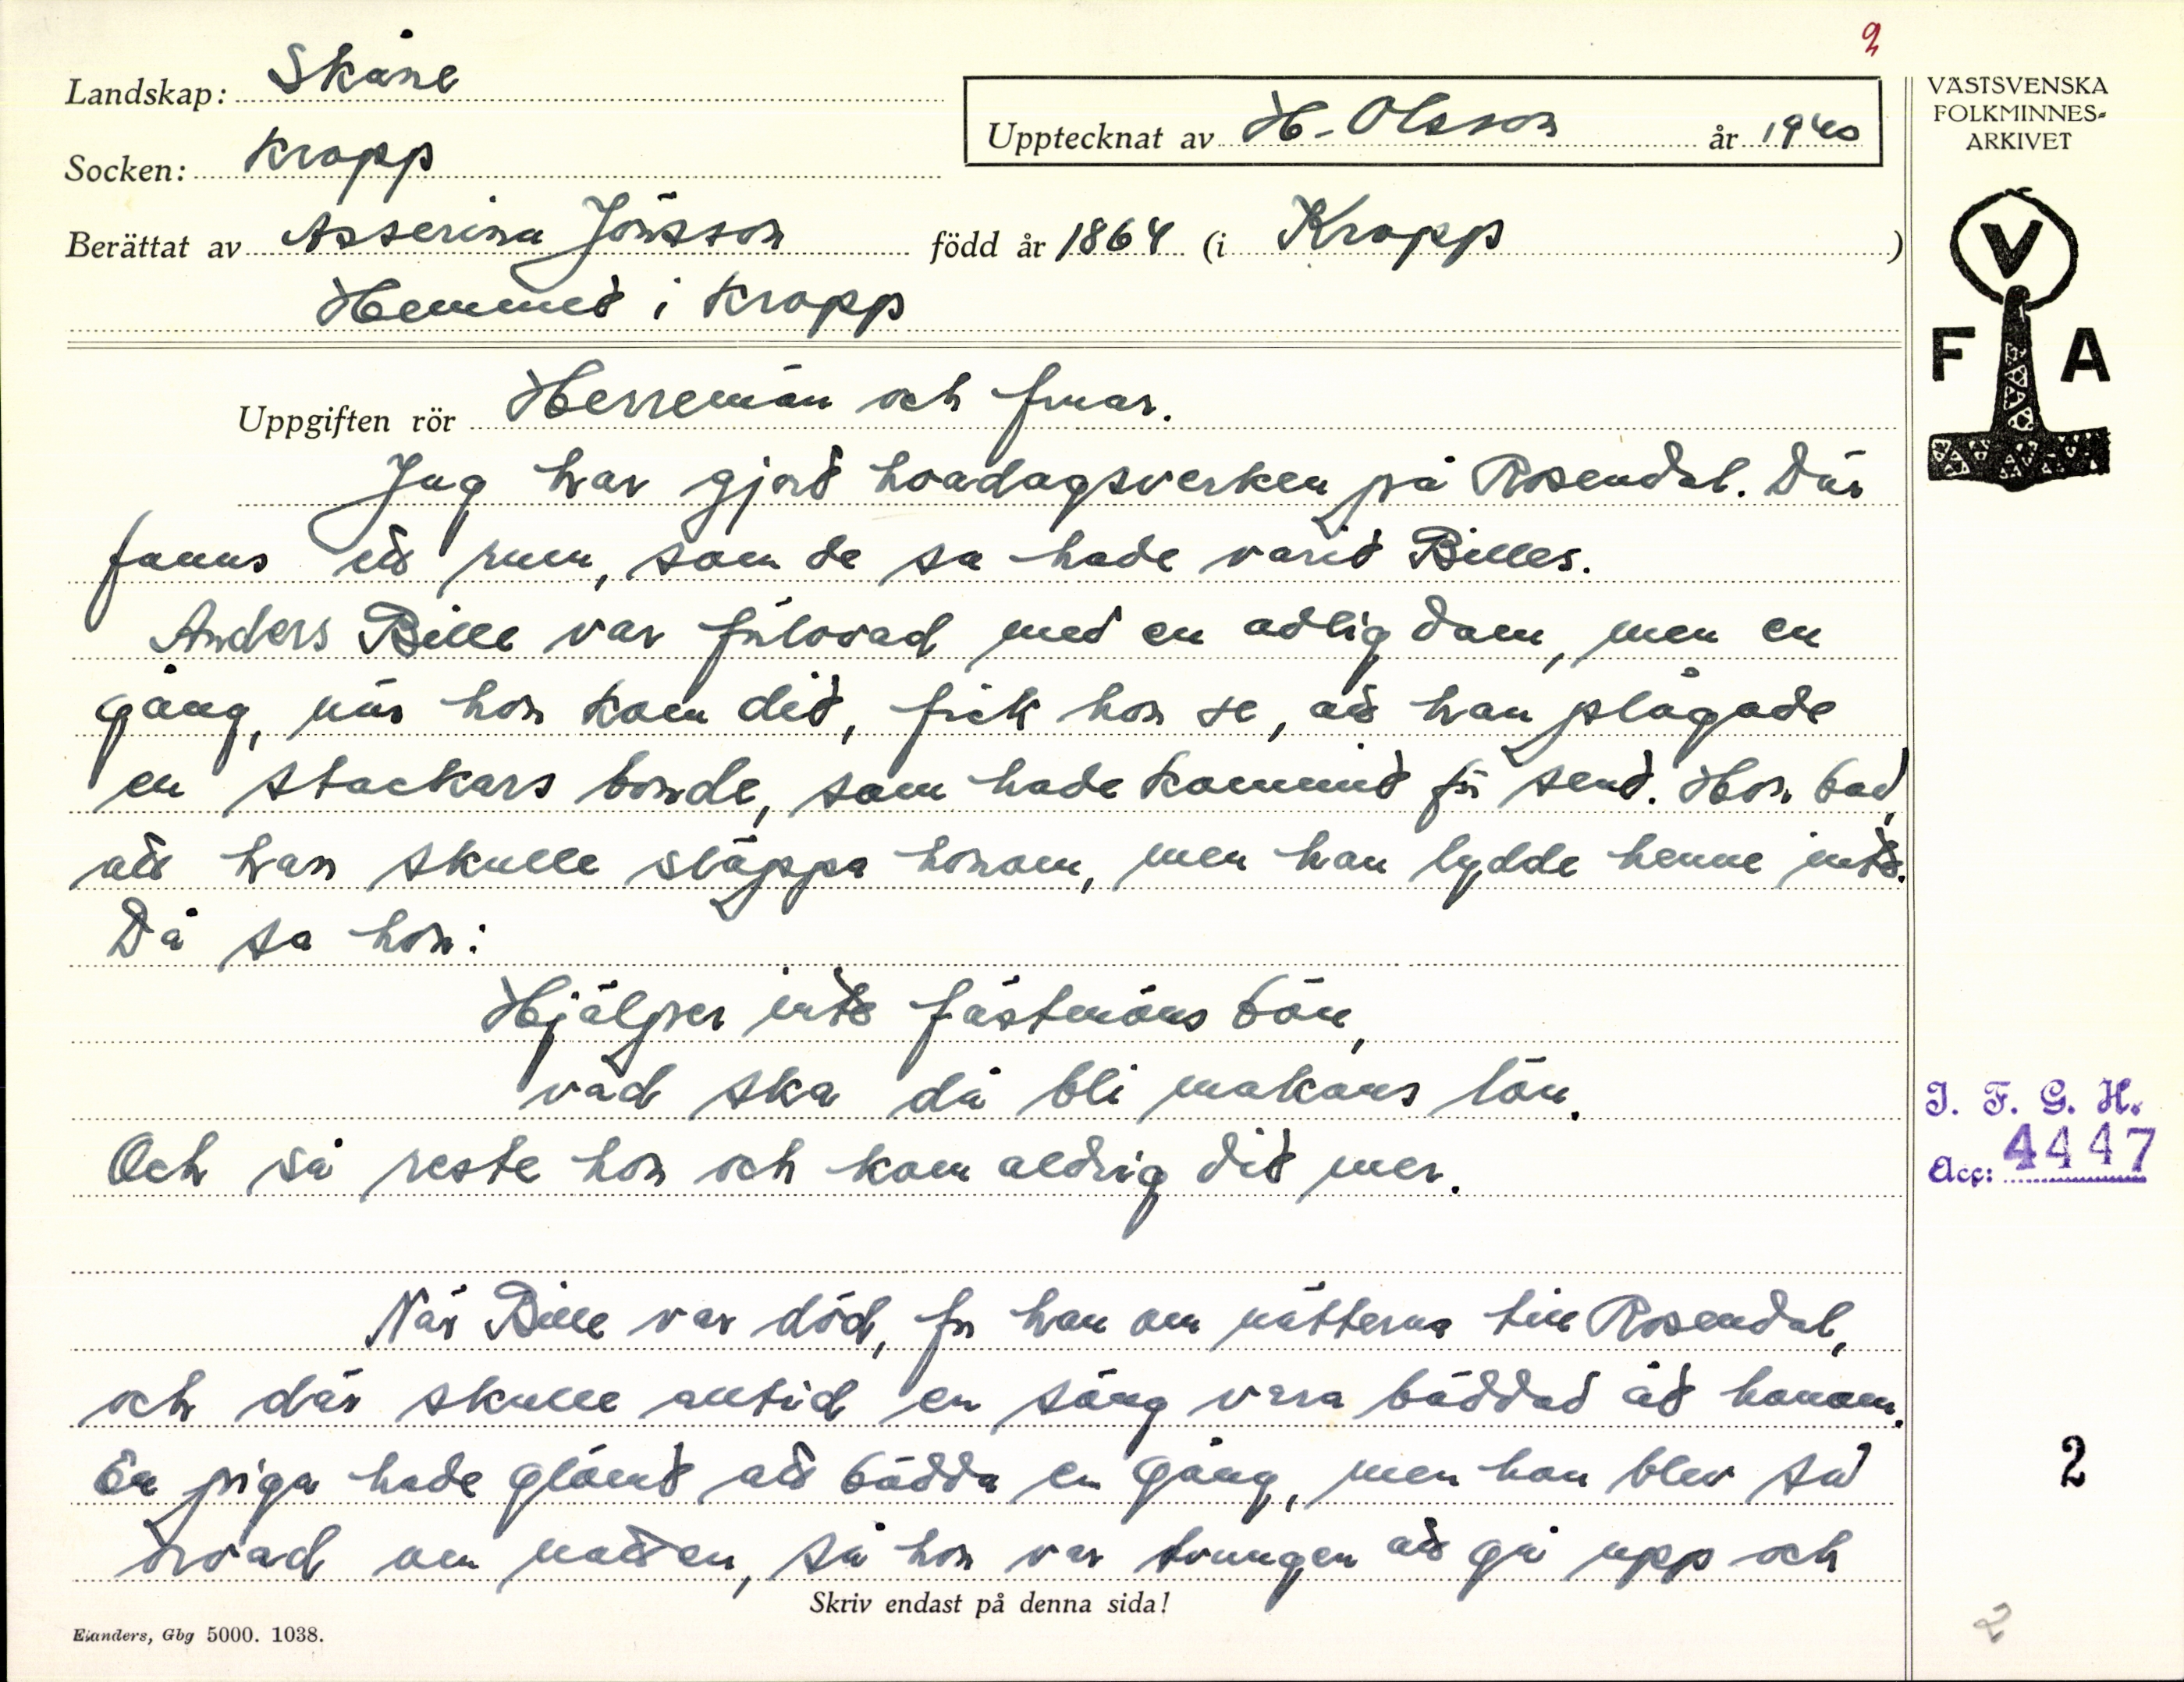 2
Landskap: Skåne
Upptecknat av H. Olsson år 1940
Socken: Kropp
Berättat av Asserina Jönsson född år 1864 (i Kropp)
Hemmet i Kropp
VÄSTSVENSKA
FOLKMINNES-
ARKIVET
V
F A
Uppgiften rör Herremän och fruar.
Jag har gjort hoadagsverken på Rosendal. Där
fanns ett rum, som de sa hade varit Billes.
Anders Bille var förlovad med en adlig dam, men en
gång, när hon kom dit, fick hon se, att han plågade
en stackars bonde, som hade kommit för sent. Hon bad,
att han skulle släppa honom, men han lydde henne inte.
Då sa hon:
Hjälper inte fästmöns bön,
vad ska då bli makans lön.
Och så reste hon och kom aldrig dit mer.
När Bille var död, for han om nätterna till Rosendal,
och där skulle alltid en säng vara bäddad åt honom.
En piga hade glömt att bädda en gång, men hon blev så
oroad om natten, så hon var tvungen att gå upp och
Skriv endast på denna sida!
Elanders, Gbg 5000. 1038.
I. F. G. H.
Acc: 4447
2
2